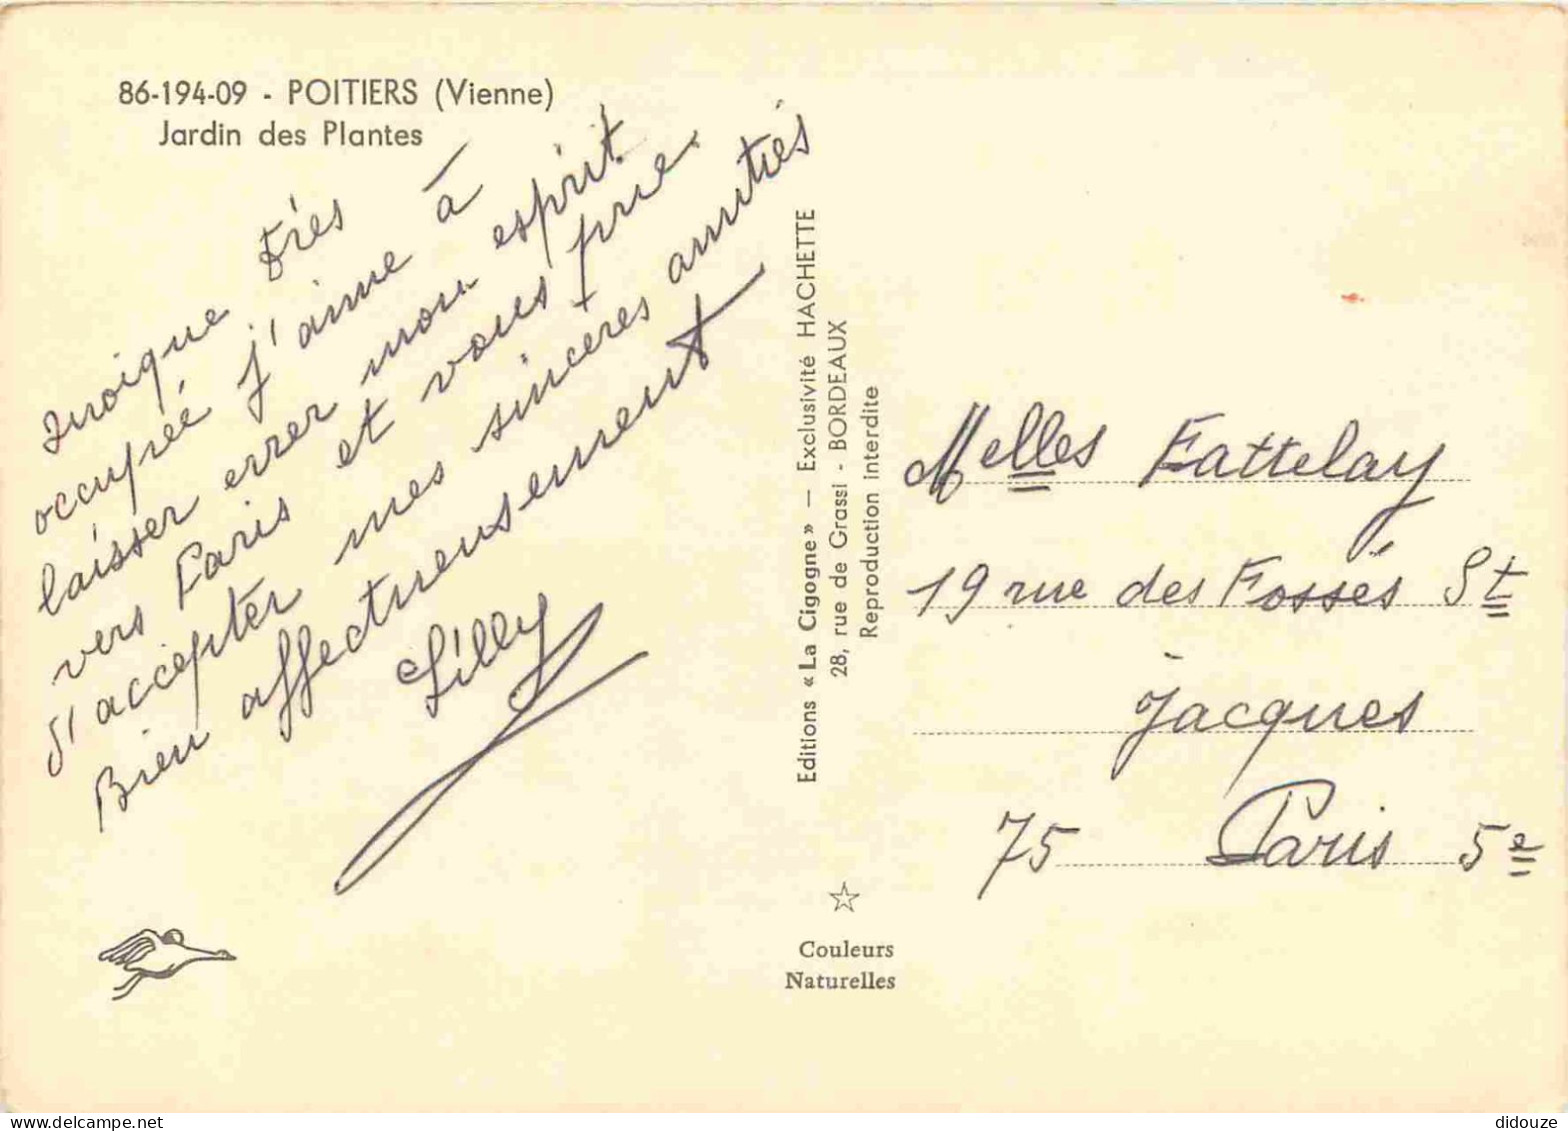 86-194-09 - POITIERS (Vienne)
Jardin des Plantes
Quoique très
occupée j'aime à
laisser errer mon esprit
vers Paris et vous prie
d'accepter mes sincères amitiés
Bien affectueusement
Lilly
Editions « La Cigogne » — Exclusivité HACHETTE
28, rue de Grassi - BORDEAUX
Reproduction interdite
Couleurs
Naturelles
Melles Fattelay
19 rue des Fossés St
Jacques
75 Paris 5e
www.delcampe.net
didouze